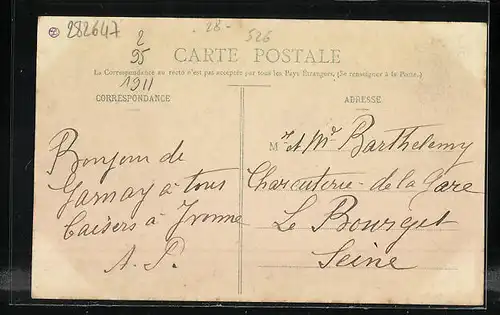 282647
2
95
1911
28-
526
CARTE POSTALE
La Correspondance au recto n'est pas acceptée par tous les Pays Étrangers. (Se renseigner à la Poste.)
CORRESPONDANCE
ADRESSE
Bonjour de
Garnay à tous
baisers à Yvonne
A. P.
Mr et Mme Barthelemy
Charcuterie - de la Gare
Le Bourget
Seine